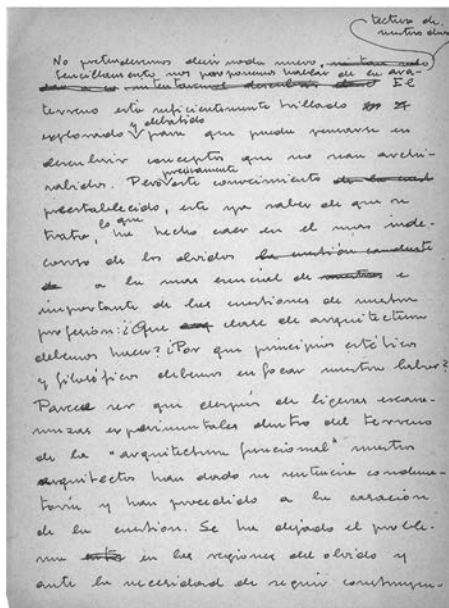 tectura de
nuestros días
No pretendemos decir nada nuevo,
Sencillamente nos proponemos hablar de la arqui-
El
terreno está suficientemente trillado
explorado y debatido para que pueda pensarse en
descubrir conceptos que no sean archi-
sabidos. Pero precisamente este conocimiento
preestablecido, este ya saber de que se
trata, lo que ha hecho caer en el mas inde-
coroso de los olvidos la cuestión
a la mas esencial de e
importante de las cuestiones de nuestra
profesion: ¿Que clase de arquitectura
debemos hacer? ¿Por que principios estéticos
y filosóficos debemos enfocar nuestra labor?
Parece ser que después de ligeras escara-
muzas experimentales dentro del terreno
de la "arquitectura funcional" nuestros
arquitectos han dado su sentencia condena-
toria y han procedido a la casación
de la cuestion. Se ha dejado el proble-
ma en las regiones del olvido y
ante la necesidad de seguir construyen-